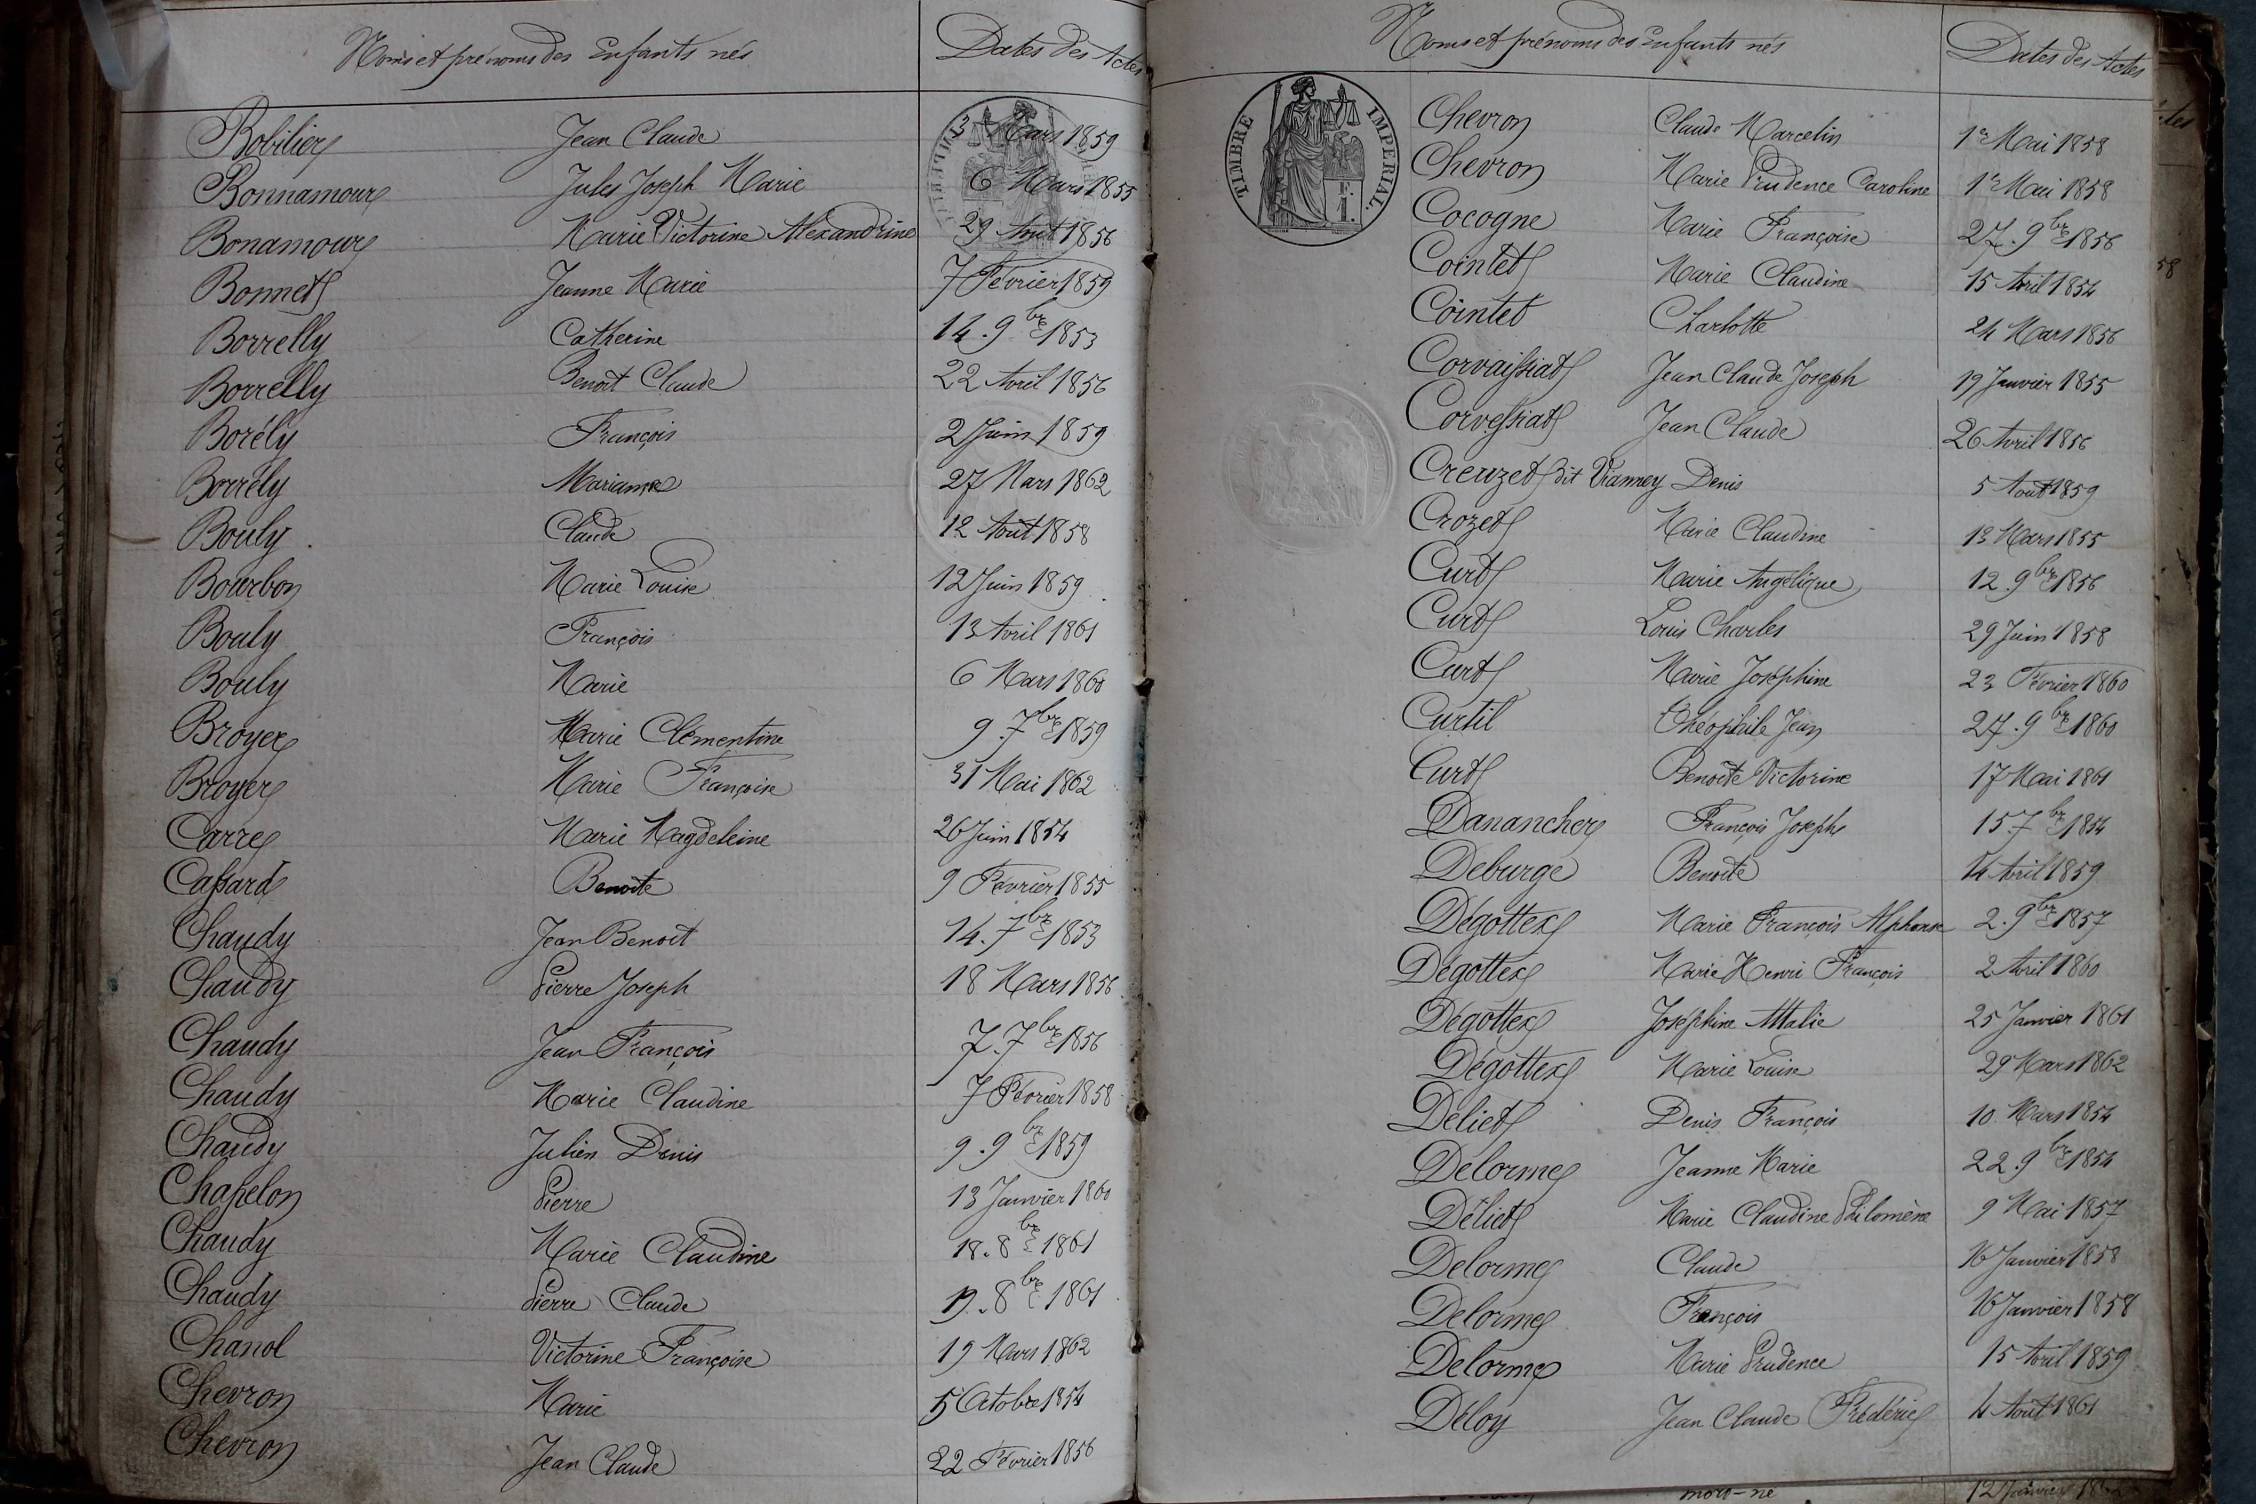 Noms et prénoms des Enfants nés Dates des Actes
Bobilier Jean Claude Mars 1859
Bonnamour Jules Joseph Marie 6 Mars 1855
Bonamour Marie Victorine Alexandrine 29 Aout 1856
Bonnet Jeanne Marie 7 Février 1859
Borrelly Catherine 14. 9bre 1853
Borrelly Benoit Claude 22 Avril 1856
Borély François 2 Juin 1859
Borrély Marianne 27 Mars 1862
Bouly Claude 12 Août 1858
Bourbon Marie Louise 12 Juin 1859
Bouly François 13 Avril 1861
Bouly Marie 6 Mars 1860
Broyer Marie Clémentine 9. 7bre 1859
Broyer Marie Françoise 31 Mai 1862
Carre Marie Magdeleine 26 Juin 1854
Cassard Benoite 9 Février 1855
Chaudy Jean Benoit 14. 7bre 1853
Chaudy Pierre Joseph 18 Mars 1856
Chaudy Jean François 7. 7bre 1856
Chaudy Marie Claudine 7 Février 1858
Chaudy Julien Denis 9. 9bre 1859
Chapelon Pierre 13 Janvier 1860
Chaudy Marie Claudine 18. 8bre 1861
Chaudy Pierre Claude 19. 8bre 1861
Chanol Victorine Françoise 19 Mars 1862
Chevron Marie 5 Octobre 1854
Chevron Jean Claude 22 Février 1856
Noms et prénoms des Enfants nés Dates des Actes
TIMBRE IMPERIAL
F. 1.
Chevron Claude Marcelin 1er Mai 1858
Chevron Marie Prudence Caroline 1er Mai 1858
Cocogne Marie Françoise 27. 9bre 1856
Cointet Marie Claudine 15 Avril 1854
Cointet Charlotte 24 Mars 1856
Corvaissiat Jean Claude Joseph 19 Janvier 1855
Corvessiat Jean Claude 26 Avril 1856
Creuzet dit Vianney Denis 5 Août 1859
Crozet Marie Claudine 13 Mars 1855
Curt Marie Angélique 12. 9bre 1856
Curt Louis Charles 29 Juin 1858
Curt Marie Joséphine 23 Février 1860
Curtil Théophile Jean 27. 9bre 1860
Curt Benoite Victorine 17 Mai 1861
Danancher François Joseph 15 7bre 1854
Deburge Benoite 14 Avril 1859
Dégottex Marie François Alphonse 2. 9bre 1857
Dégottex Marie Henri François 2 Avril 1860
Dégottex Joséphine Attalie 25 Janvier 1861
Dégottex Marie Louise 29 Mars 1862
Déliet Denis François 10 Mars 1854
Délorme Jeanne Marie 22. 9bre 1854
Déliet Marie Claudine Philomène 9 Mai 1857
Delorme Claude 16 Janvier 1858
Delorme François 16 Janvier 1858
Delorme Marie Prudence 15 Avril 1859
Déloy Jean Claude Frédéric 4 Août 1861